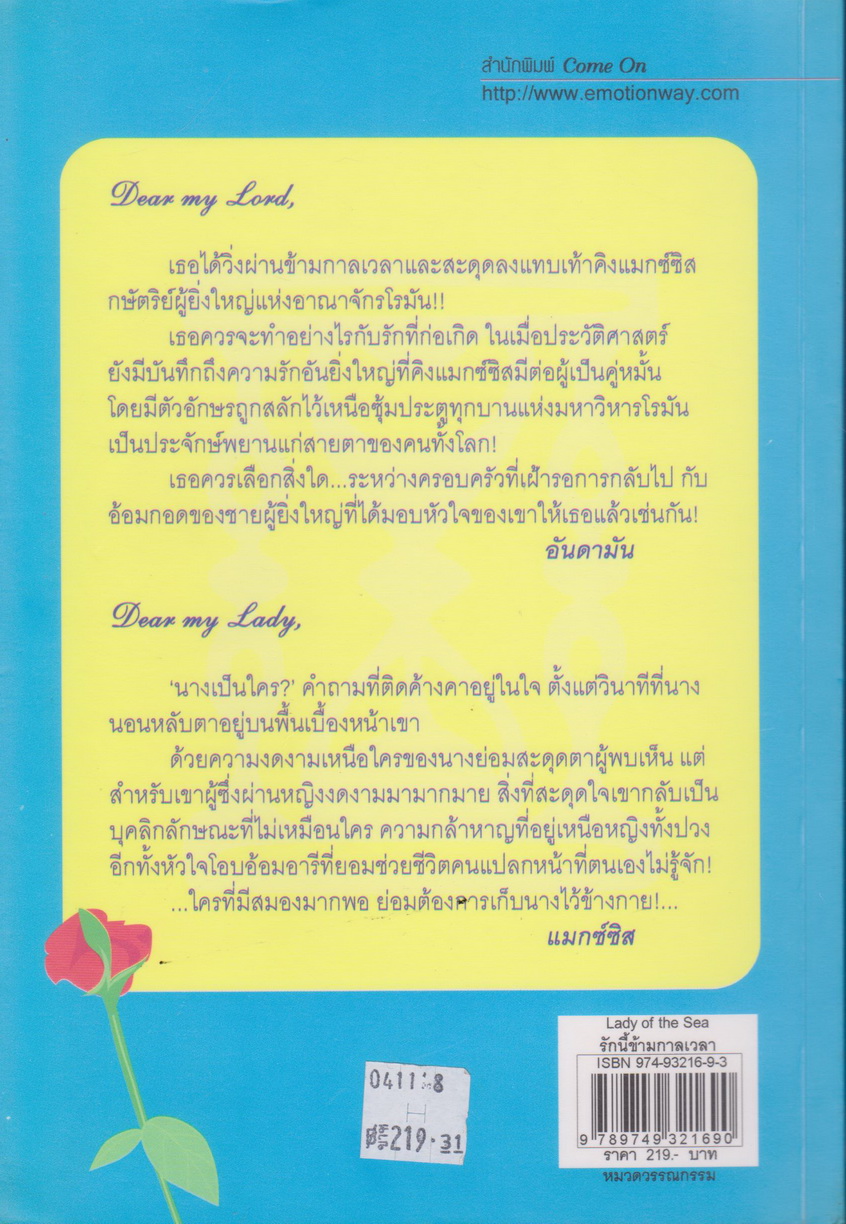 สำนักพิมพ์ Come On
http://www.emotionway.com
Dear my Lord,
เธอได้วิ่งผ่านข้ามกาลเวลาและสะดุดลงแทบเท้าคิงแมกซ์ซิส
กษัตริย์ผู้ยิ่งใหญ่แห่งอาณาจักรโรมัน!!
เธอควรจะทำอย่างไรกับรักที่ก่อเกิด ในเมื่อประวัติศาสตร์
ยังมีบันทึกถึงความรักอันยิ่งใหญ่ที่คิงแมกซ์ซิสมีต่อผู้เป็นคู่หมั้น
โดยมีตัวอักษรถูกสลักไว้เหนือซุ้มประตูทุกบานแห่งมหาวิหารโรมัน
เป็นประจักษ์พยานแก่สายตาของคนทั้งโลก!
เธอควรเลือกสิ่งใด...ระหว่างครอบครัวที่เฝ้ารอการกลับไป กับ
อ้อมกอดของชายผู้ยิ่งใหญ่ที่ได้มอบหัวใจของเขาให้เธอแล้วเช่นกัน!
อันดามัน
Dear my Lady,
'นางเป็นใคร?' คำถามที่ติดค้างคาอยู่ในใจ ตั้งแต่วินาทีที่นาง
นอนหลับตาอยู่บนพื้นเบื้องหน้าเขา
ด้วยความงดงามเหนือใครของนางย่อมสะดุดตาผู้พบเห็น แต่
สำหรับเขาผู้ซึ่งผ่านหญิงงดงามมามากมาย สิ่งที่สะดุดใจเขากลับเป็น
บุคลิกลักษณะที่ไม่เหมือนใคร ความกล้าหาญที่อยู่เหนือหญิงทั้งปวง
อีกทั้งหัวใจโอบอ้อมอารีที่ยอมช่วยชีวิตคนแปลกหน้าที่ตนเองไม่รู้จัก!
...ใครที่มีสมองมากพอ ย่อมต้องการเก็บนางไว้ข้างกาย!...
แมกซ์ซิส
Lady of the Sea
รักนี้ข้ามกาลเวลา
ISBN 974-93216-9-3
9 789749 321690
ราคา 219.- บาท
หมวดวรรณกรรม
H
219.31